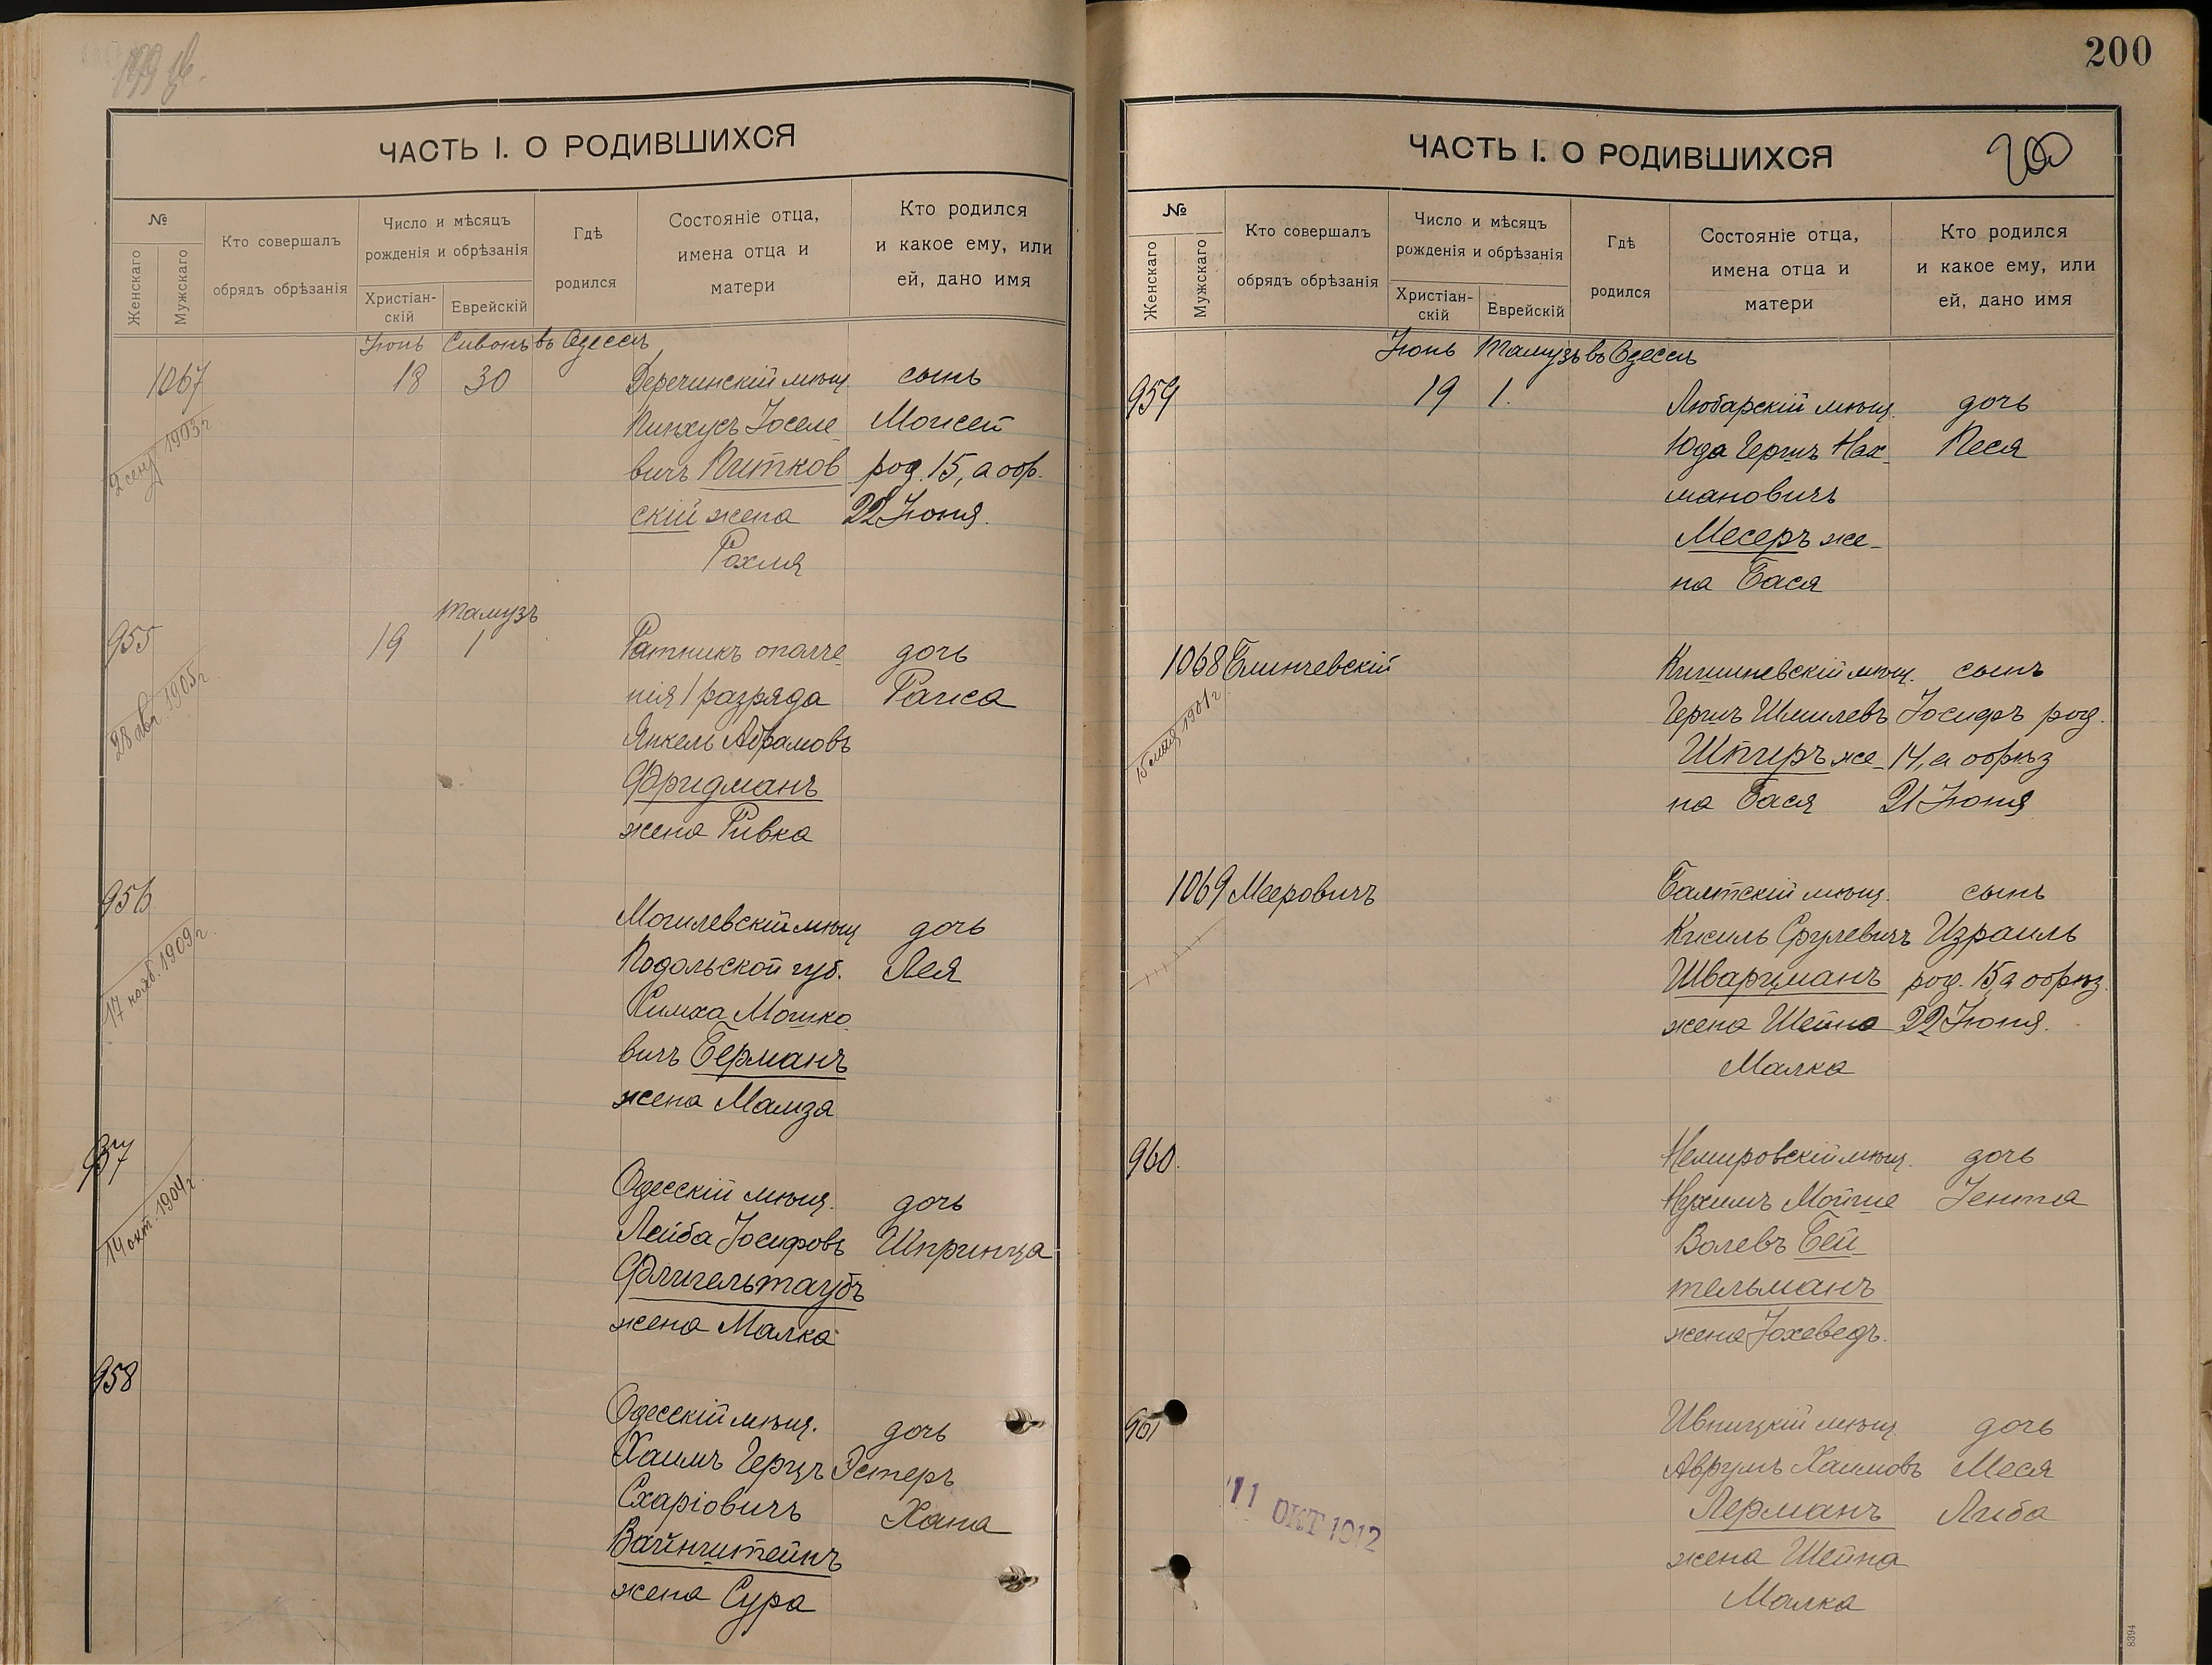 ЧАСТЬ I. О РОДИВШИХСЯ
№
Женскаго
Мужскаго
Кто совершалъ
обрядъ обрѣзанія
Число и мѣсяцъ
рожденія и обрѣзанія
Христіан-
скій
Еврейскій
Гдѣ
родился
Состояніе отца,
имена отца и
матери
Кто родился
и какое ему, или
ей, дано имя
Іюнь Сивонъ въ Одессѣ
1067 18 30 Деречинскій мѣщ. сынъ
2 сент 1903 г.
Пинхусъ Іоселе- Моисей
вичъ Питков- род. 15, а обр.
скій жена 22 Іюня.
Рохля
Тамузъ
955 19 1 Ратникъ ополче- дочь
28 авг. 1905 г.
нія 1 разряда Раиса
Янкель Абрамовъ
Фридманъ
жена Ривка
956
17 нояб. 1909 г.
Могилевскій мѣщ дочь
Подольской губ. Лея
Симха Мошко-
вичъ Берманъ
жена Мамза
957
14 окт. 1904 г.
Одесскій мѣщ. дочь
Лейба Іосифовъ Шпринца
Флигельтаубъ
жена Малка
958
Одесскій мѣщ. дочь
Хаимъ Герцъ Эстеръ
Схаріовичъ Хана
Вайнштейнъ
жена Сура
200
ЧАСТЬ I. О РОДИВШИХСЯ
200
№
Женскаго
Мужскаго
Кто совершалъ
обрядъ обрѣзанія
Число и мѣсяцъ
рожденія и обрѣзанія
Христіан-
скій
Еврейскій
Гдѣ
родился
Состояніе отца,
имена отца и
матери
Кто родился
и какое ему, или
ей, дано имя
Іюнь Тамузъ въ Одессѣ
959 19 1. Любарскій мѣщ. дочь
Юда Гершъ Нах- Песя
мановичъ
Месеръ же-
на Бася
1068 Блинчевскій Кишиневскій мѣщ. сынъ
Гершъ Шмилевъ Іосифъ род.
Шпиръ же- 14, а обрѣз
на Бася 21 Іюня
1069 Мееровичъ Балтскій мѣщ. сынъ
Кисиль Срулевичъ Израиль
Шварцманъ род. 15 а обрѣз.
жена Шейна 22 Іюня.
Малка
960. Немировскій мѣщ. дочь
Нухимъ Мойше Іента
Волевъ Бей-
тельманъ
жена Іохеведъ.
961 Ивницкій мѣщ. дочь
Аврумъ Хаимовъ Меся
Лерманъ Либа
жена Шейна
Малка
11 ОКТ 1912
8394